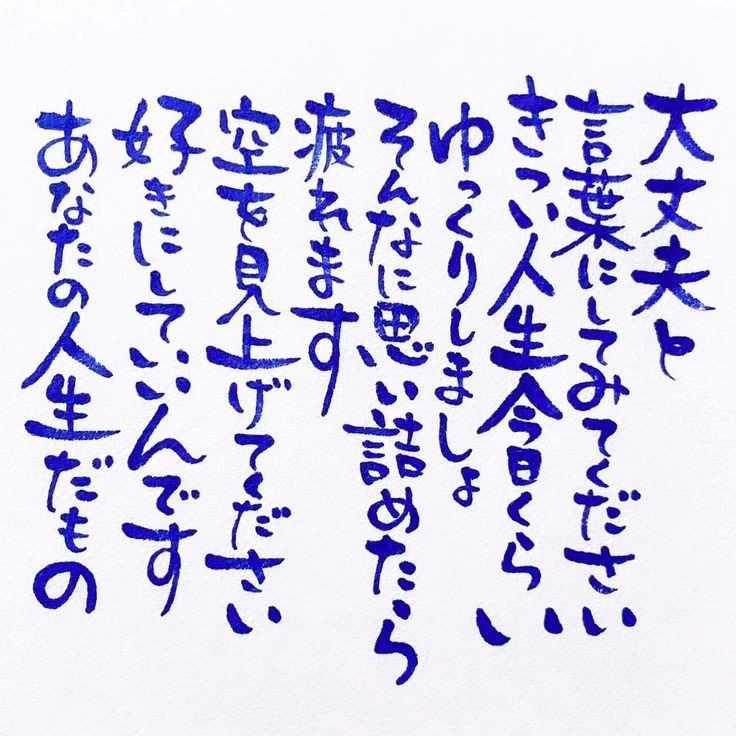 大丈夫と
言葉にしてみてください
きつい人生今日くらい
ゆっくりしましょ
そんなに思い詰めたら
疲れます
空を見上げてください
好きにしていいんです
あなたの人生だもの